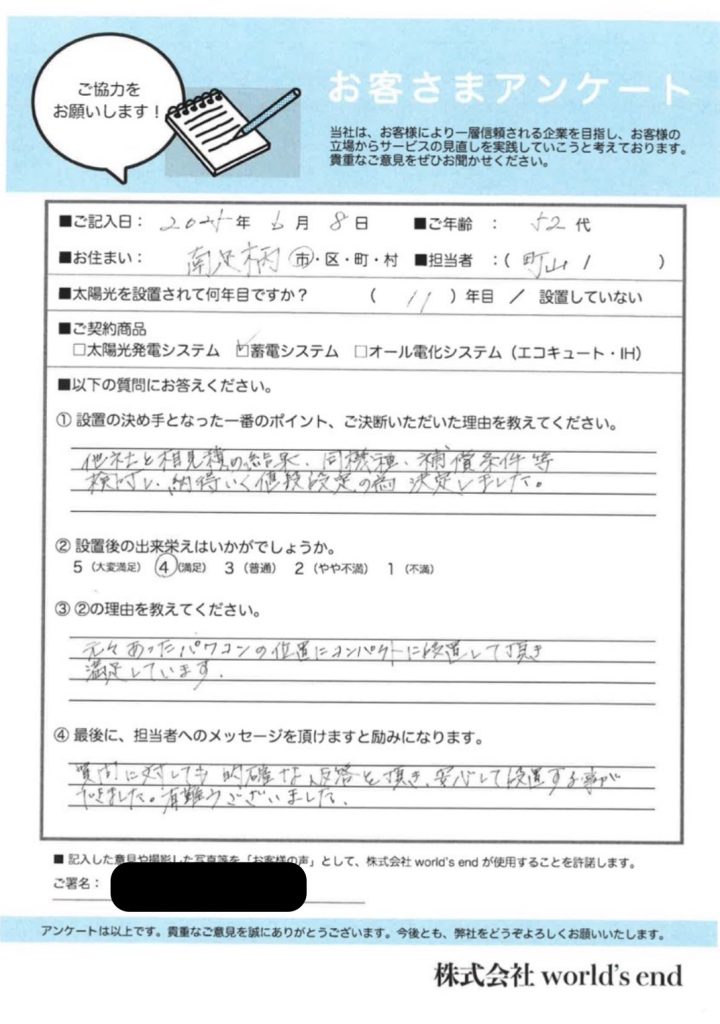 ご協力を
お願いします！
お客さまアンケート
当社は、お客様により一層信頼される企業を目指し、お客様の
立場からサービスの見直しを実践していこうと考えております。
貴重なご意見をぜひお聞かせください。
■ご記入日： 2025年 6月 8日 ■ご年齢 ： 52代
■お住まい： 南足柄 市・区・町・村 ■担当者 ：( 町山 )
■太陽光を設置されて何年目ですか？ ( 11 ) 年目 ／ 設置していない
■ご契約商品
□太陽光発電システム ☑蓄電システム □オール電化システム（エコキュート・IH）
■以下の質問にお答えください。
① 設置の決め手となった一番のポイント、ご決断いただいた理由を教えてください。
他社と相見積の結果、同機種、補償条件等
検討し、納得いく値段設定の為 決定しました。
② 設置後の出来栄えはいかがでしょうか。
5（大変満足） 4（満足） 3（普通） 2（やや不満） 1（不満）
③ ②の理由を教えてください。
元々あったパワコンの位置にコンパクトに設置して頂き
満足しています.
④ 最後に、担当者へのメッセージを頂けますと励みになります。
質問に対しても 的確な 返答を頂き、安心して設置する事が
できました。有難うございました.
■ 記入した意見や撮影した写真等を「お客様の声」として、株式会社 world's end が使用することを許諾します。
ご署名：
アンケートは以上です。貴重なご意見を誠にありがとうございます。今後とも、弊社をどうぞよろしくお願いいたします。
株式会社 world's end